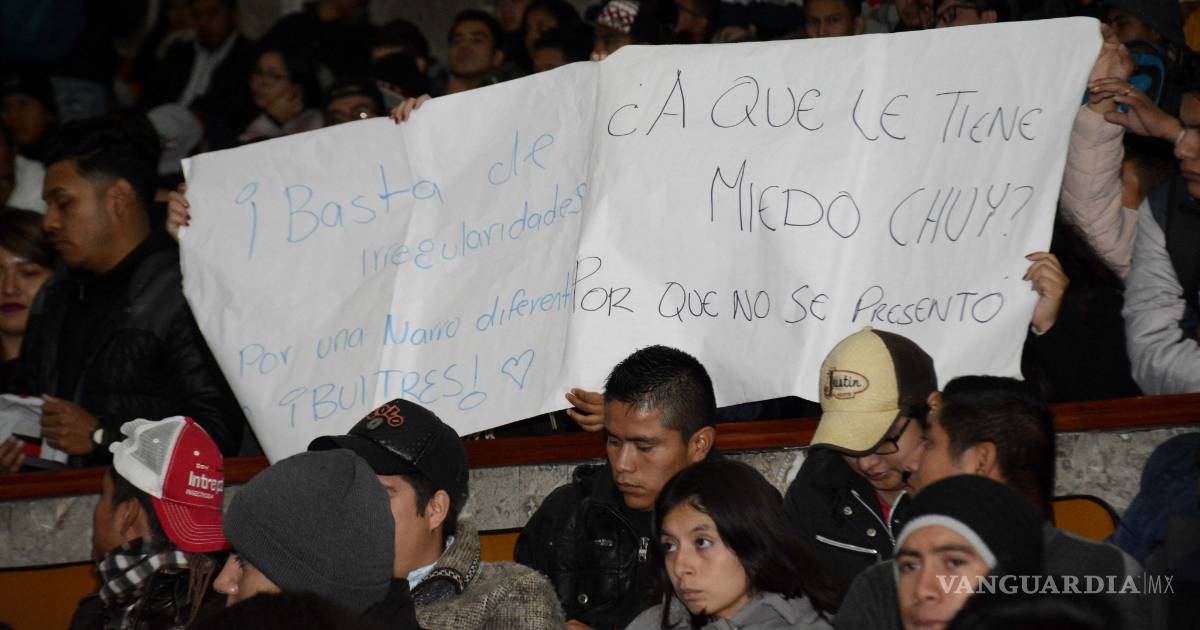 ¡Basta de
irregularidades
Por una Narro diferent
¡BUITRES! ♡
¿A QUE LE TIENE
MIEDO CHUY?
POR QUE NO SE PRESENTÓ
Justin
Intre
INSECTICIDA
VANGUARDIA|MX